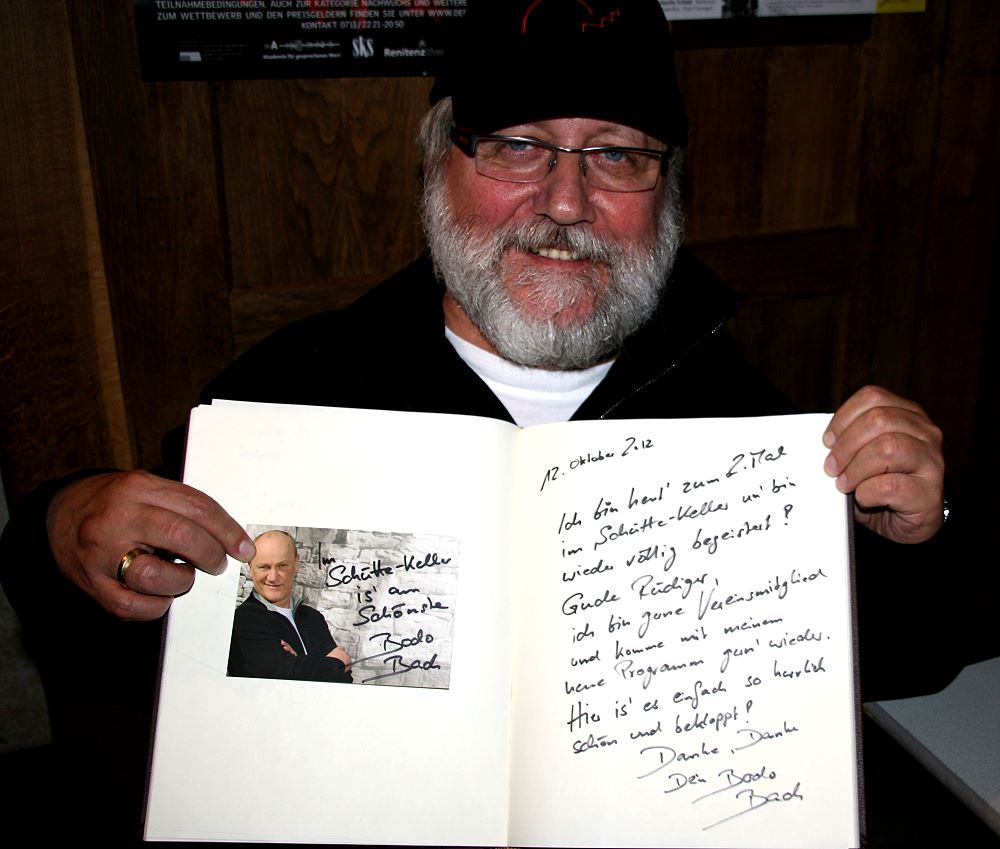 TEILNAHMEBEDINGUNGEN, AUCH ZUR KATEGORIE NACHWUCHS UND WEITERE
ZUM WETTBEWERB UND DEN PREISGELDERN FINDEN SIE UNTER WWW.DE
KONTAKT: 0711/22 21-20 50
Akademie für gesprochenes Wort
sks
Renitenz
Im
Schütte-Keller
is' am
Schönste
Bodo
Bach
12. Oktober 2012
Ich bin heut' zum 2. Mal
im Schütte-Keller un' bin
wieder völlig begeistert!
Gude Rüdiger,
ich bin gerne Vereinsmitglied
und komme mit meinem
neue Programm gern' wieder.
Hier is' es einfach so herrlich
schön und bekloppt!
Danke, Danke
Dein Bodo
Bach